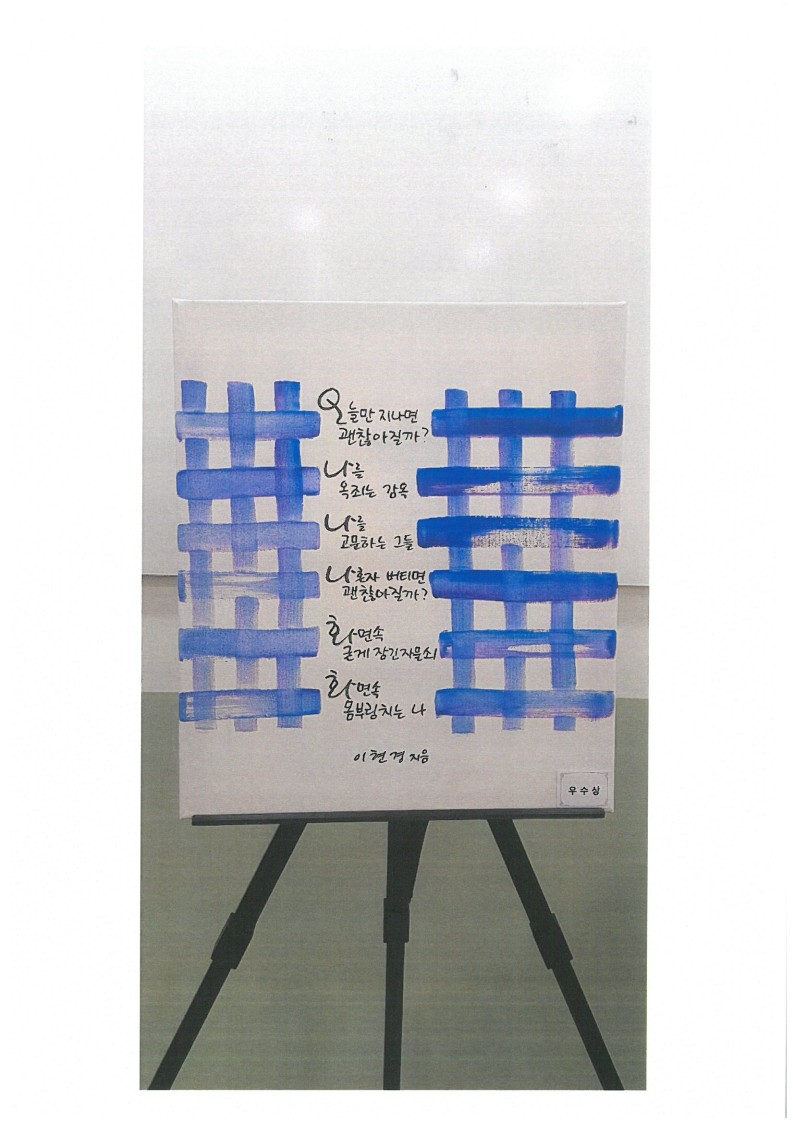 오늘만 지나면
괜찮아질까?
나를
옥죄는 감옥
나를
고문하는 그들
나혼자 버티면
괜찮아질까?
화면속
굳게 잠긴자물쇠
화면속
몸부림치는 나
이현경 지음
우수상